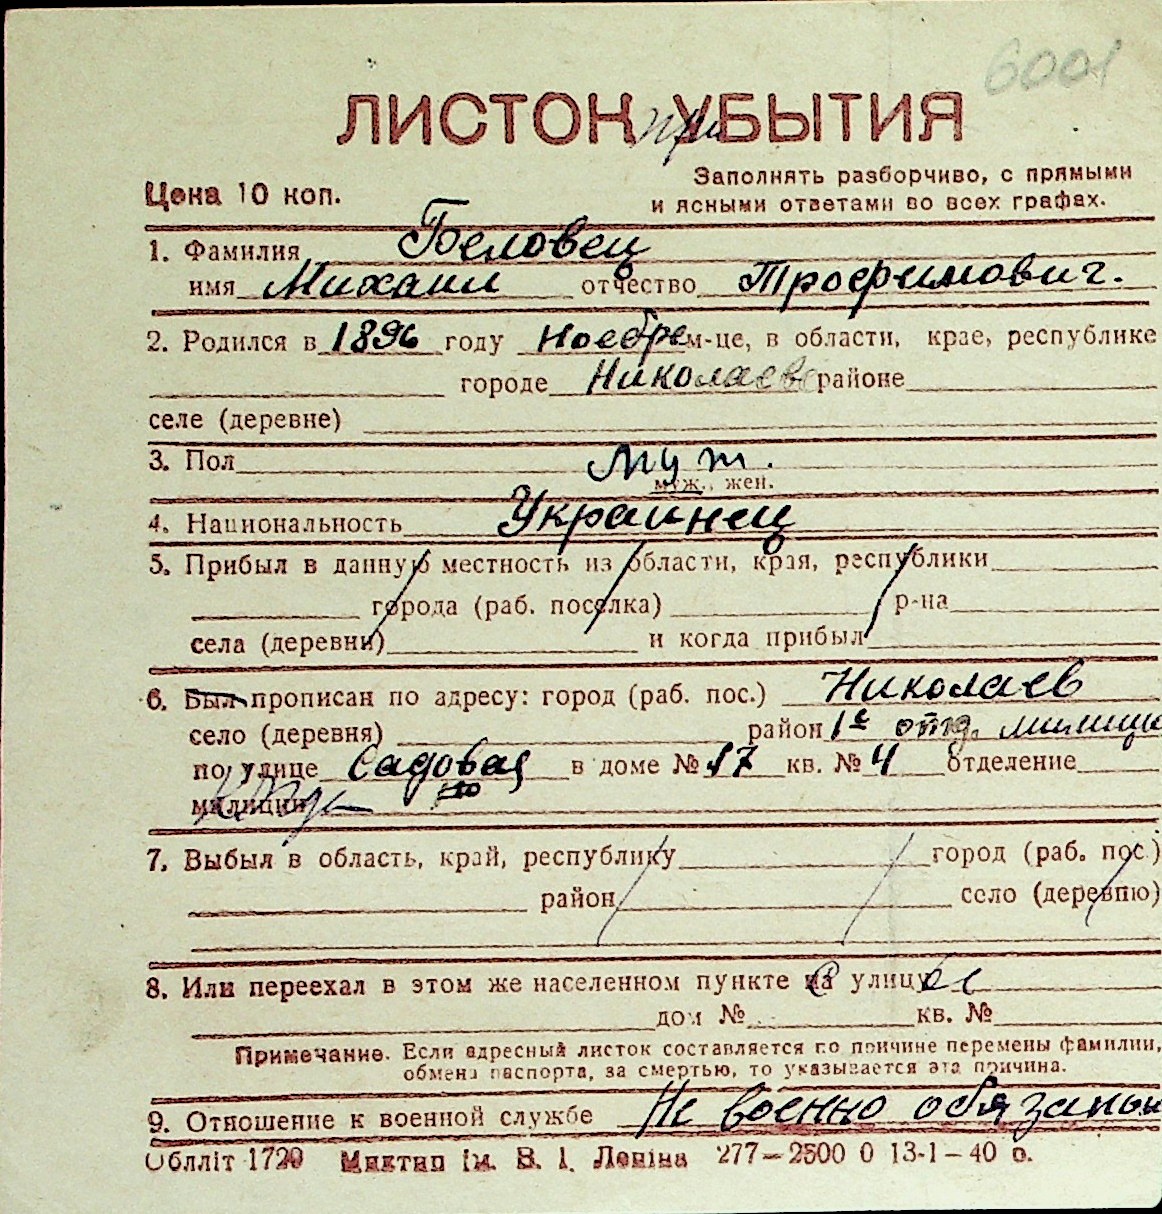 6001
ЛИСТОК при УБЫТИЯ
Цена 10 коп.
Заполнять разборчиво, с прямыми
и ясными ответами во всех графах.
1. Фамилия Беловец
имя Михаил отчество Трофимович.
2. Родился в 1896 году Ноебре м-це, в области, крае, республике
городе Николаев районе
селе (деревне)
3. Пол Муж.
муж., жен.
4. Национальность Украинец
5. Прибыл в данную местность из области, края, республики
города (раб. поселка) р-на
села (деревни) и когда прибыл
6. Был прописан по адресу: город (раб. пос.) Николаев
село (деревня) район 1е отд. милиции
по улице Садовая в доме № 17 кв. № 4 отделение
милиции
7. Выбыл в область, край, республику город (раб. пос.)
район село (деревню)
8. Или переехал в этом же населенном пункте на улицу
дом № кв. №
Примечание. Если адресный листок составляется по причине перемены фамилии,
обмена паспорта, за смертью, то указывается эта причина.
9. Отношение к военной службе Не военно обязаный
Облліт 1720 Миктип ім. В. І. Леніна 277—2500 0 13-1—40 о.